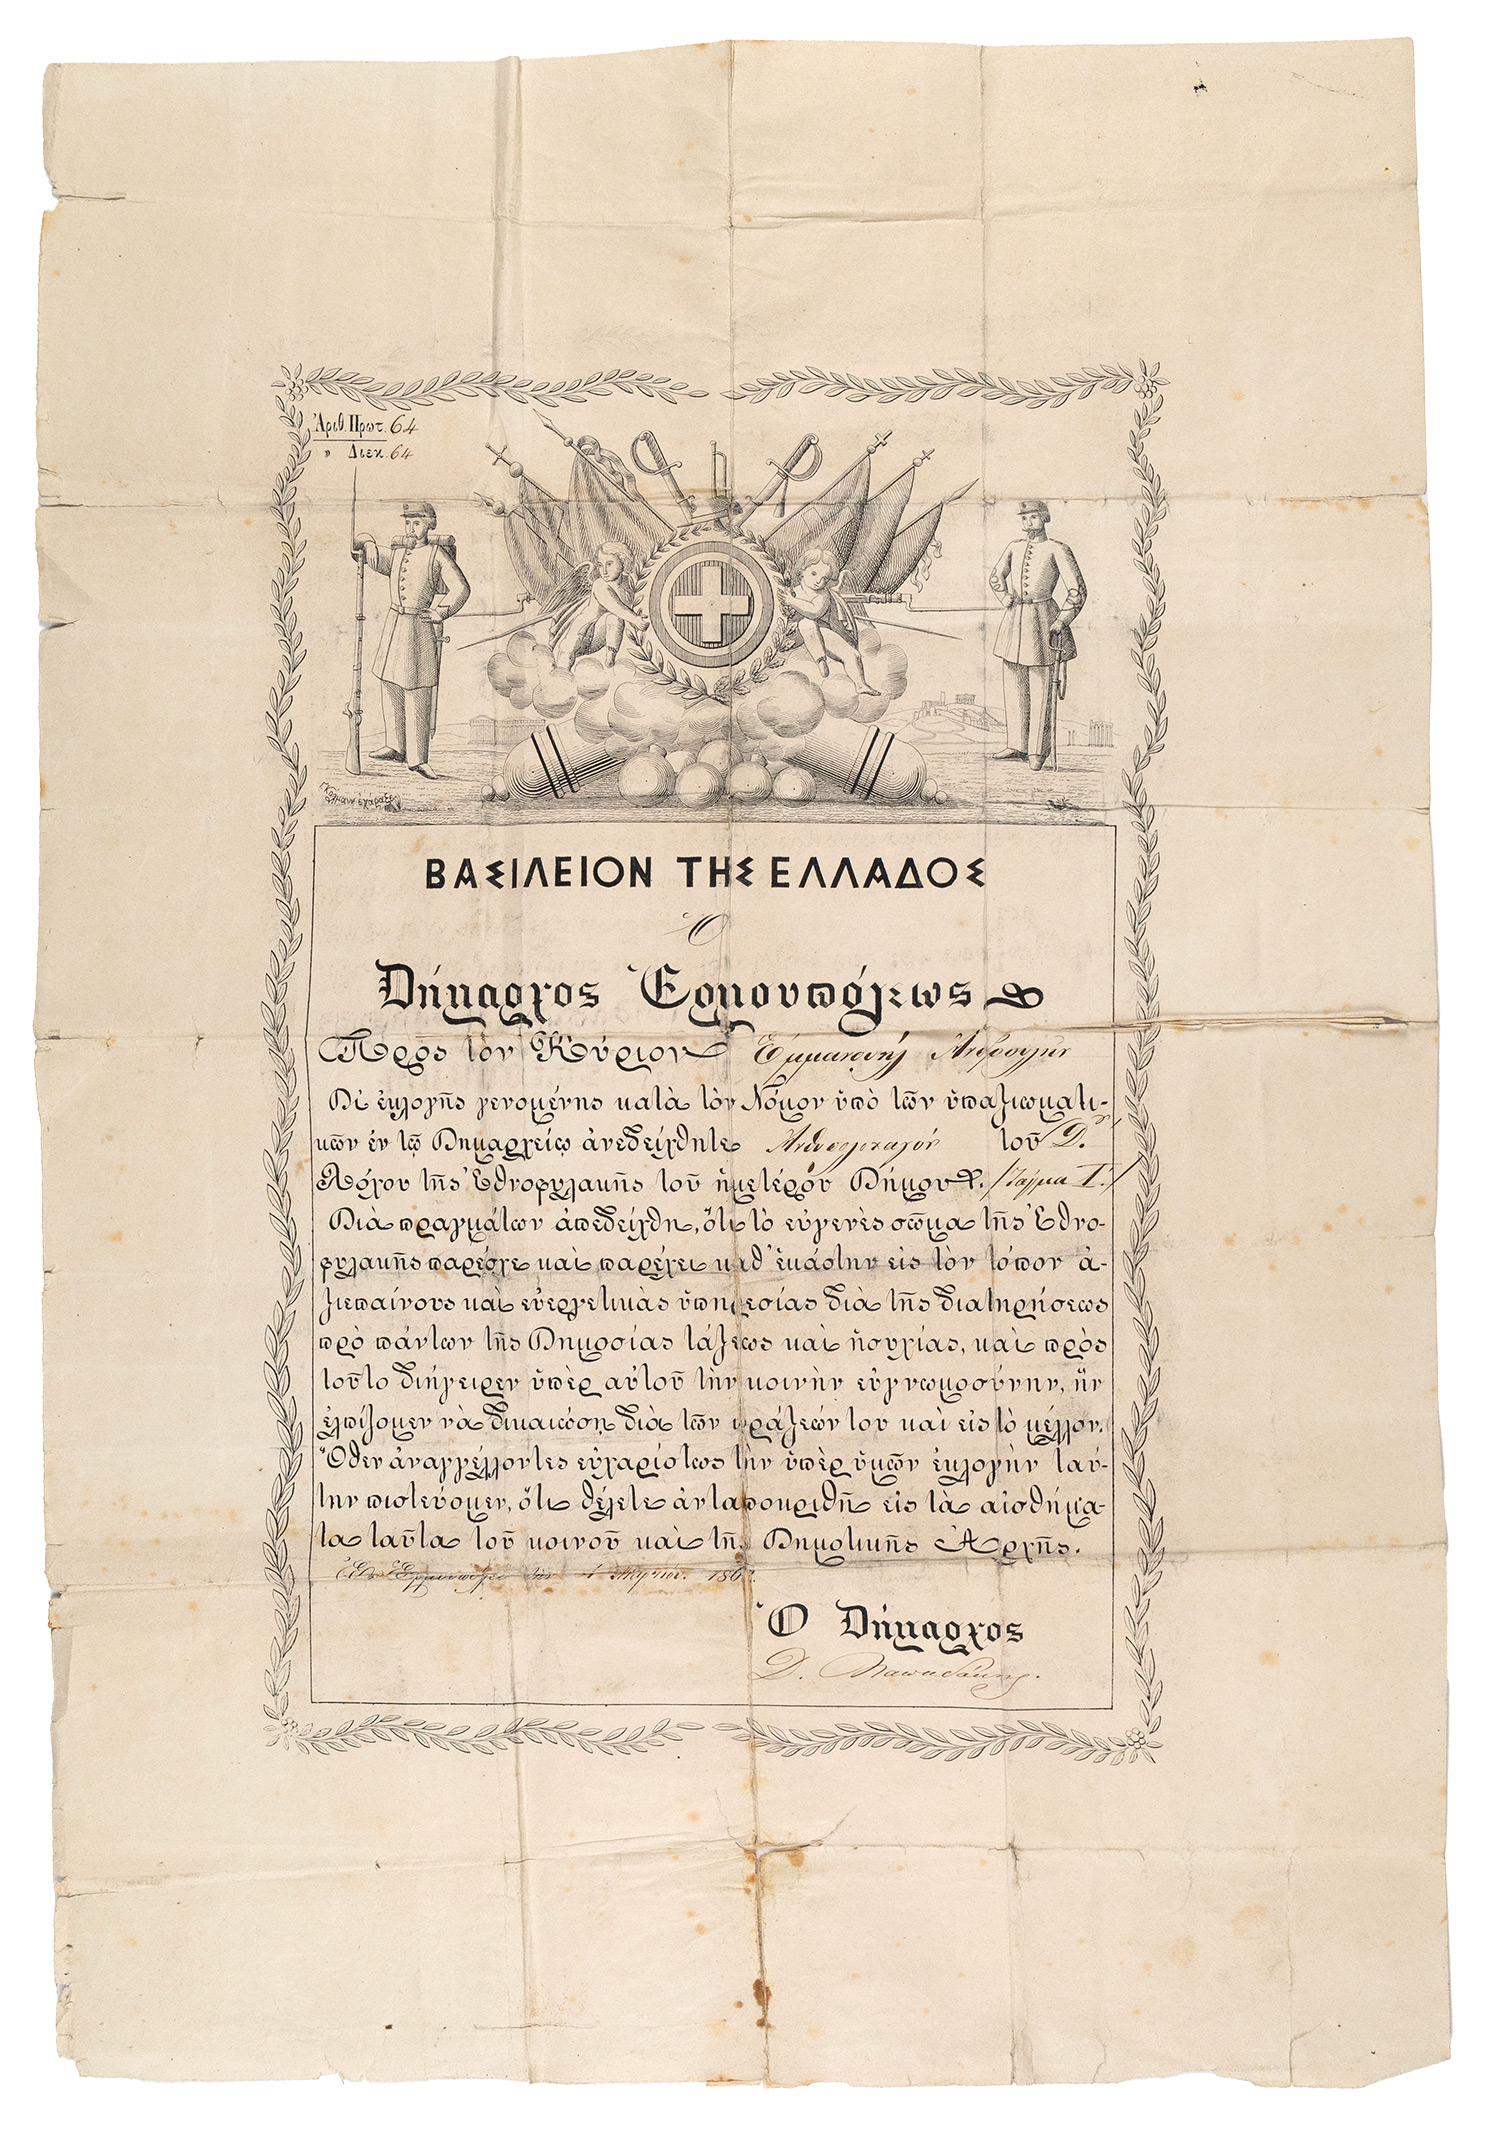 Ἀριθ. Πρωτ. 64
» Διεκ. 64
ἐχάραξε
ΒΑΣΙΛΕΙΟΝ ΤΗΣ ΕΛΛΑΔΟΣ
Ὁ
Δήμαρχος Ἑρμουπόλεως
Πρὸς τὸν Κύριον Ἐμμανουὴλ
Δι' ἐκλογῆς γενομένης κατὰ τὸν Νόμον ὑπὸ τῶν ὑπαξιωματι-
κῶν ἐν τῷ Δημαρχείῳ ἀνεδείχθητε Ἀνθυπολοχαγὸς τοῦ Δ.
Λόχου τῆς Ἐθνοφυλακῆς τοῦ ἡμετέρου Δήμου /Τάγμα Γ./
Διὰ πραγμάτων ἀπεδείχθη, ὅτι τὸ εὐγενὲς σῶμα τῆς Ἐθνο-
φυλακῆς παρέσχε καὶ παρέχει καθ' ἑκάστην εἰς τὸν τόπον ἀ-
ξιεπαίνους καὶ εὐεργετικὰς ὑπηρεσίας διὰ τῆς διατηρήσεως
πρὸ πάντων τῆς Δημοσίας τάξεως καὶ ἡσυχίας, καὶ πρὸς
τοῦτο διήγειρεν ὑπὲρ αὐτοῦ τὴν κοινὴν εὐγνωμοσύνην, ἣν
ἐλπίζομεν νὰ δικαιώσῃ διὰ τῶν πράξεών του καὶ εἰς τὸ μέλλον.
Ὅθεν ἀναγγέλλοντες εὐχαρίστως τὴν ὑπὲρ ὑμῶν ἐκλογὴν ταύ-
την πιστεύομεν, ὅτι θέλετε ἀνταποκριθῆ εἰς τὰ αἰσθήμα-
τα ταῦτα τοῦ κοινοῦ καὶ τῆς Δημοτικῆς Ἀρχῆς.
Ἐν Ἑρμουπόλει τὴν 186
Ὁ Δήμαρχος
Δ. Παπαδάκης.